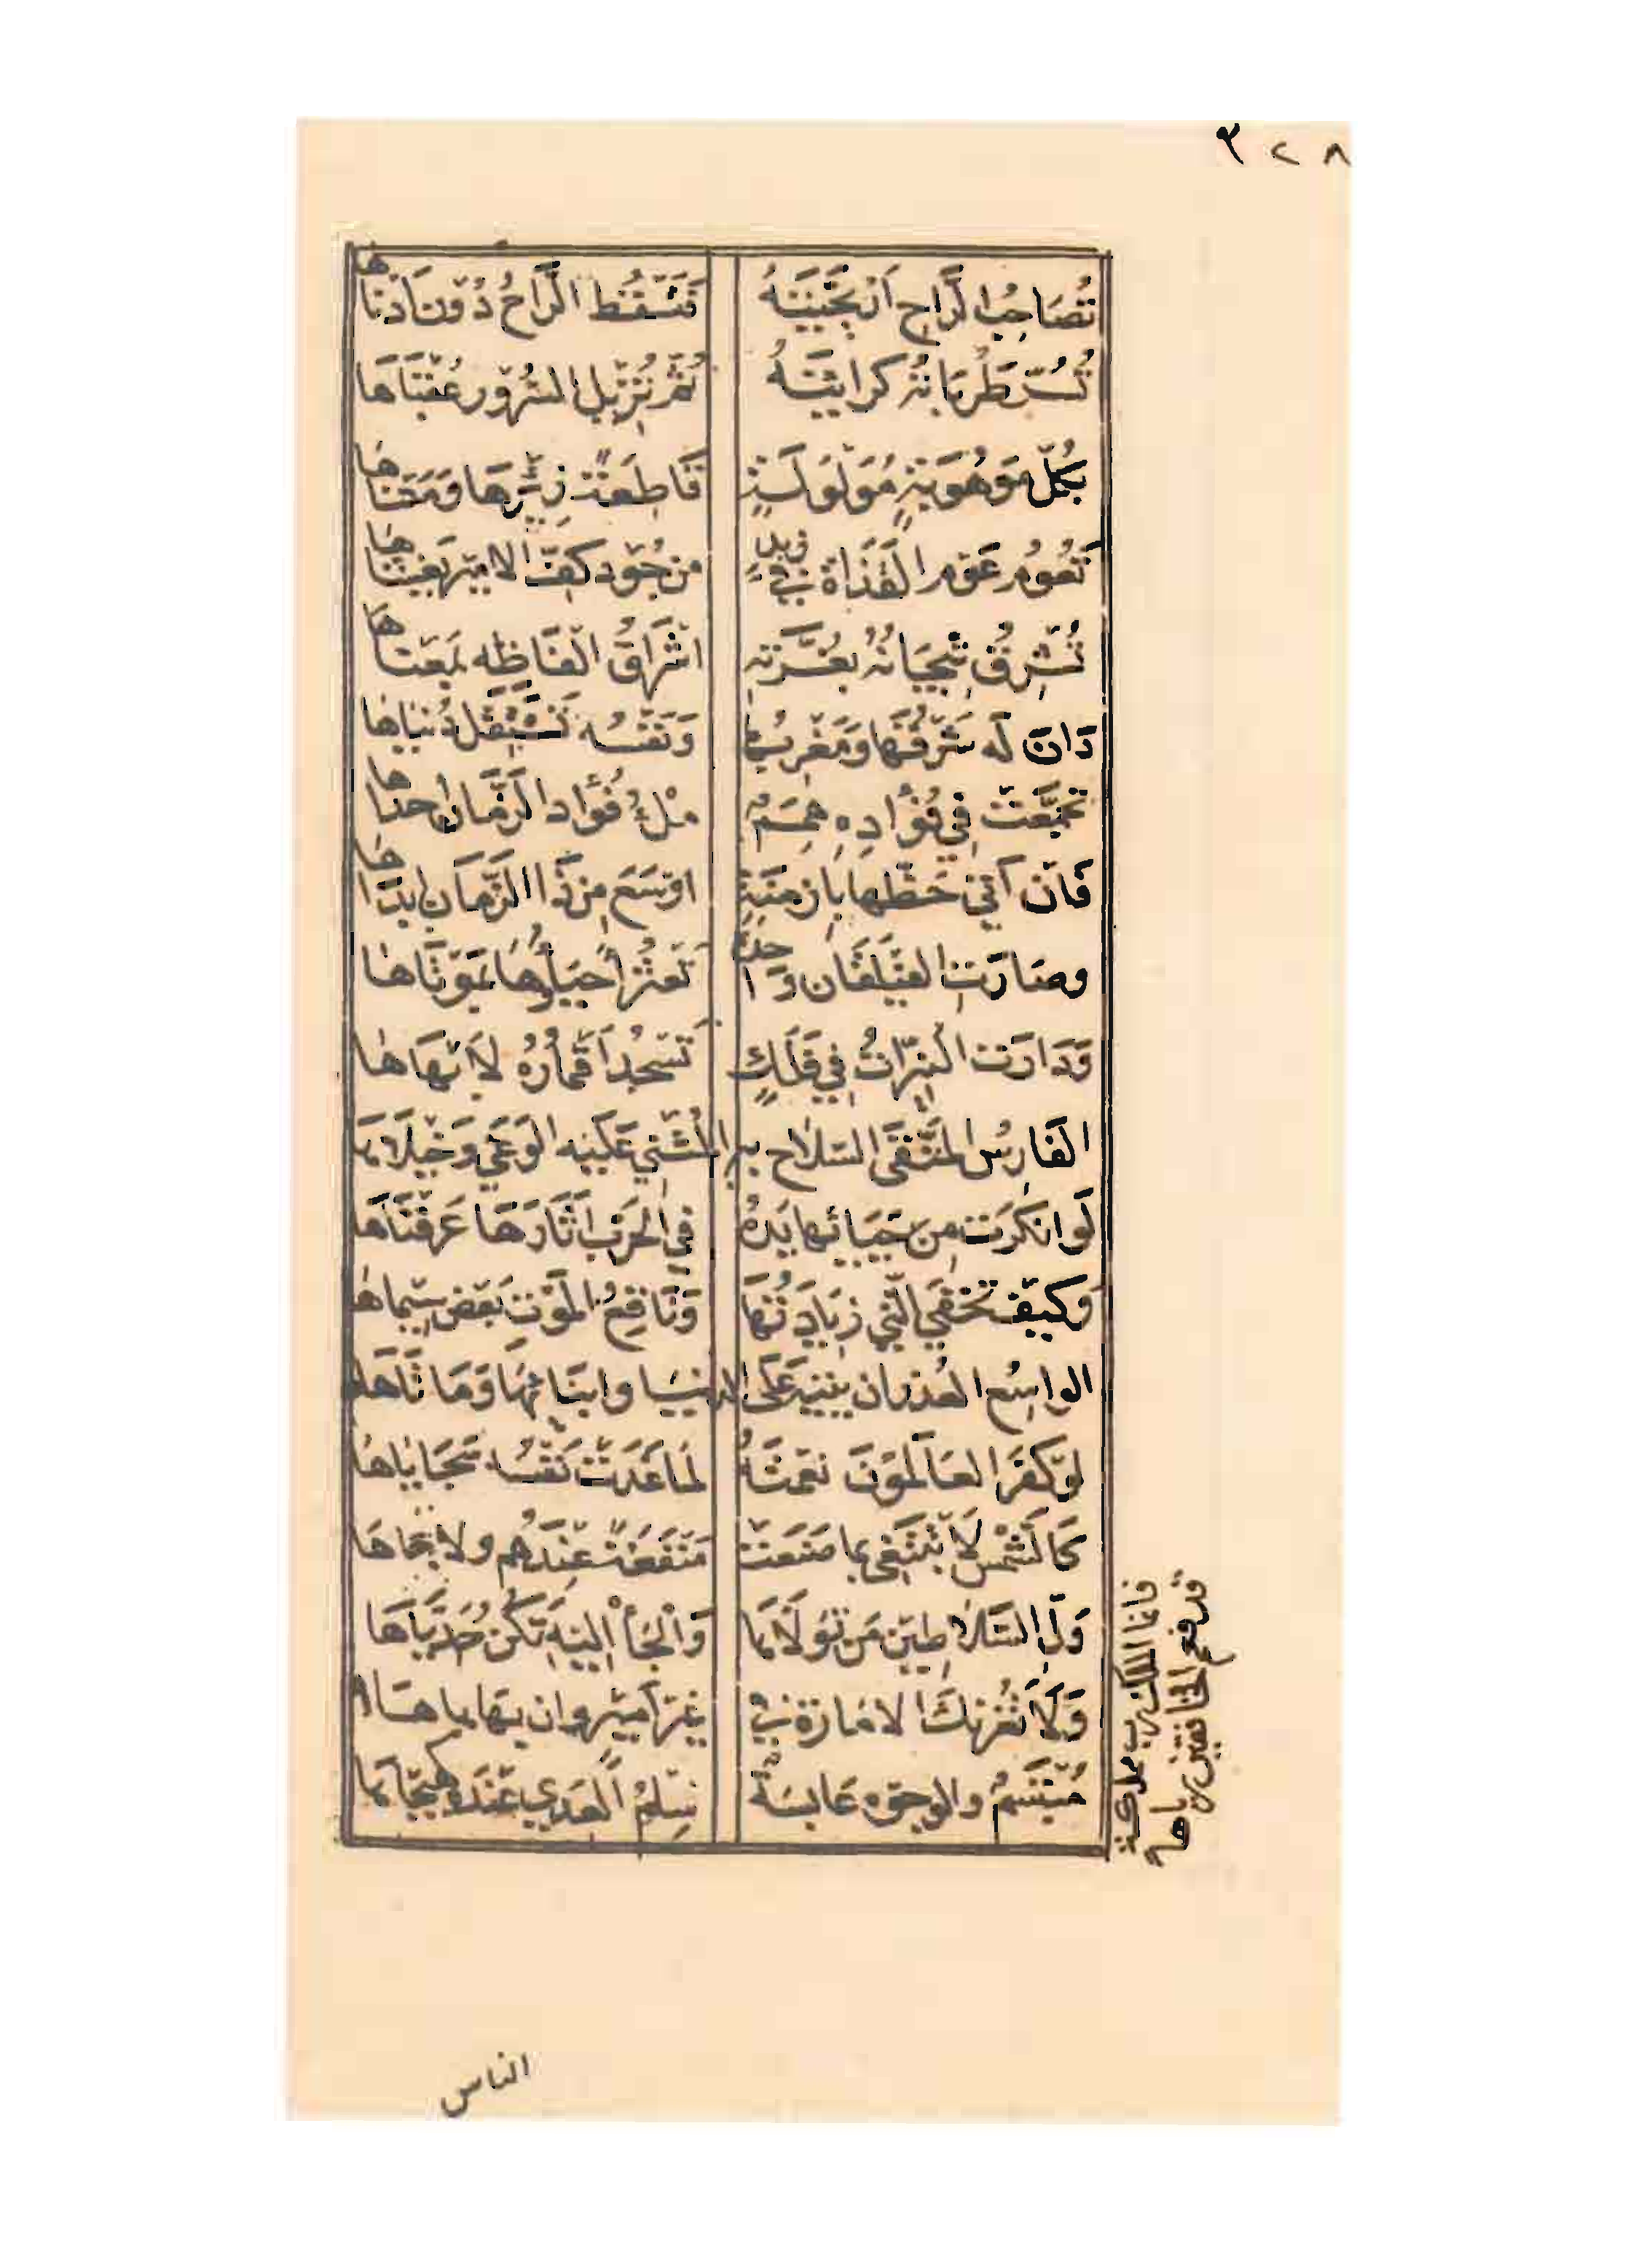 ٣٢٨
تُصَاحِبُ الرَّاحَ أَرْيَحِيَّتُهُ فَتَسْقُطُ الرَّاحُ دُوْنَ أدْنَاهَا
تَسُرُّ طَرَبَاتُهُ كَرَائِنَهُ ثُمَّ تُزِيْلُ السُّرُوْرَ عُقْبَاهَا
بِكُلِّ مَوْهُوْبَةٍ مُوَلْوِلَةٍ قَاطِعَةً زِيْرَهَا وَمَثْنَاهَا
تَعُوْمُ عَوْمَ القَذَاةِ فِي زبدٍ مِنْ جُوْدِ كَفِّ الامِيْرِ يَغْشَاهَا
تُشْرِقُ تِيْجَانُهُ بِغُرَّتِهِ اشْرَاقَ الْفَاظِهِ بِمَعْنَاهَا
دَانَ لَهُ شَرْقُهَا وَمَغْرِبُهَا وَنَفْسُهُ تَسْتَقِلُّ دُنْيَاهَا
تَجَمَّعَتْ فِي فُؤَادِهِ هِمَمٌ مِلْءُ فُؤَادِ الزَّمَانِ احْدَاهَا
فَانْ أَتَى حَظُّهَا بِازْمِنَةٍ اوْسَعَ مِنْ ذَا الزَّمَانِ ابْدَاهَا
وصَارَتِ الفَيْلَقَانِ وَاحِدَةً تَعْثُرُ أَحْيَاؤُهَا بِمَوْتَاهَا
وَدَارَتِ النَّيِّرَاتُ فِي فَلَكٍ تَسْجُدُ أَقْمَارُهُ لابْهَاهَا
الفَارِسُ المُتَّقَى السِّلَاحُ بِهِ المُثْنِي عَلَيْهِ الوَغَى وَخَيْلَاهَا
لَوْ انْكَرَتْ مِنْ حَيَائِهَا يَدُهُ فِي الحَرْبِ آثَارَهَا عَرَفْنَاهَا
وَكَيْفَ تَخْفَى الَّتِي زِيَادَتُهَا وَنَاقِعُ المَوْتِ بَعْضُ سِيْمَاهَا
الواسِعُ العُذْرِ ان يَتِيْهَ عَلَى الدُّنْيَا وابْنَائِهَا وَمَا تَاهَا
لَوْ كَفَرَ العَالَمُوْنَ نِعْمَتَهُ لَمَا عَدَتْ نَفْسُهُ سَجَايَاهَا
كَالشَّمْسِ لَا تَبْتَغِي بِمَا صَنَعَتْ مَنْفَعَةً عِنْدَهُم ولا جَاهَا
وَلِّ السَّلَاطِيْنَ مَنْ تَوَلَّاهَا وَالْجَأْ إِلَيْهِ تَكُنْ حُدَيَّاهَا
وَلَا تَغُرَّنَّكَ الامَارَةُ فِي غَيْرِ أَمِيْرٍ وان بِهَا بَاهَا
فانما الملك رب مملكة
قد فعم الخافقين رياها
مُبْتَسِمٌ والوجوْه عَابِسَةٌ سِلْمُ العِدَى عِنْدَهُ كَهَيْجَاهَا
الناس